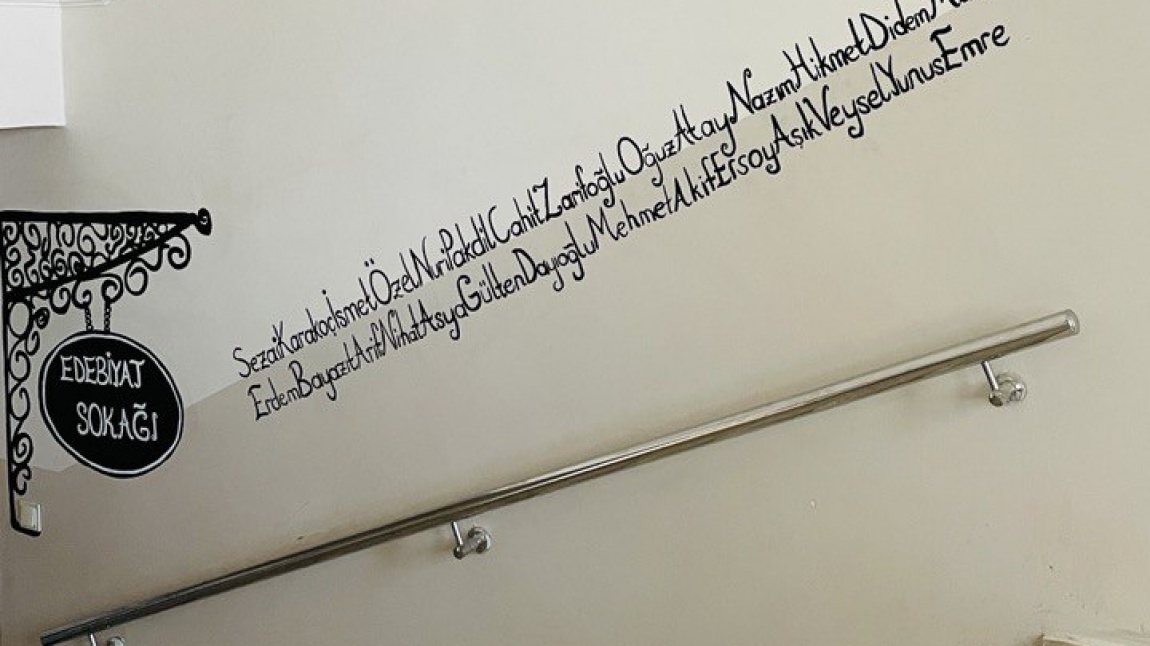 EDEBİYAT
SOKAĞI
SezaiKarakoçİsmetÖzelNuriPakdilCahitZarifoğluOğuzAtayNazımHikmetDidem
ErdemBayazıtArifNihatAsyaGültenDayıoğluMehmetAkifErsoyAşıkVeyselYunusEmre